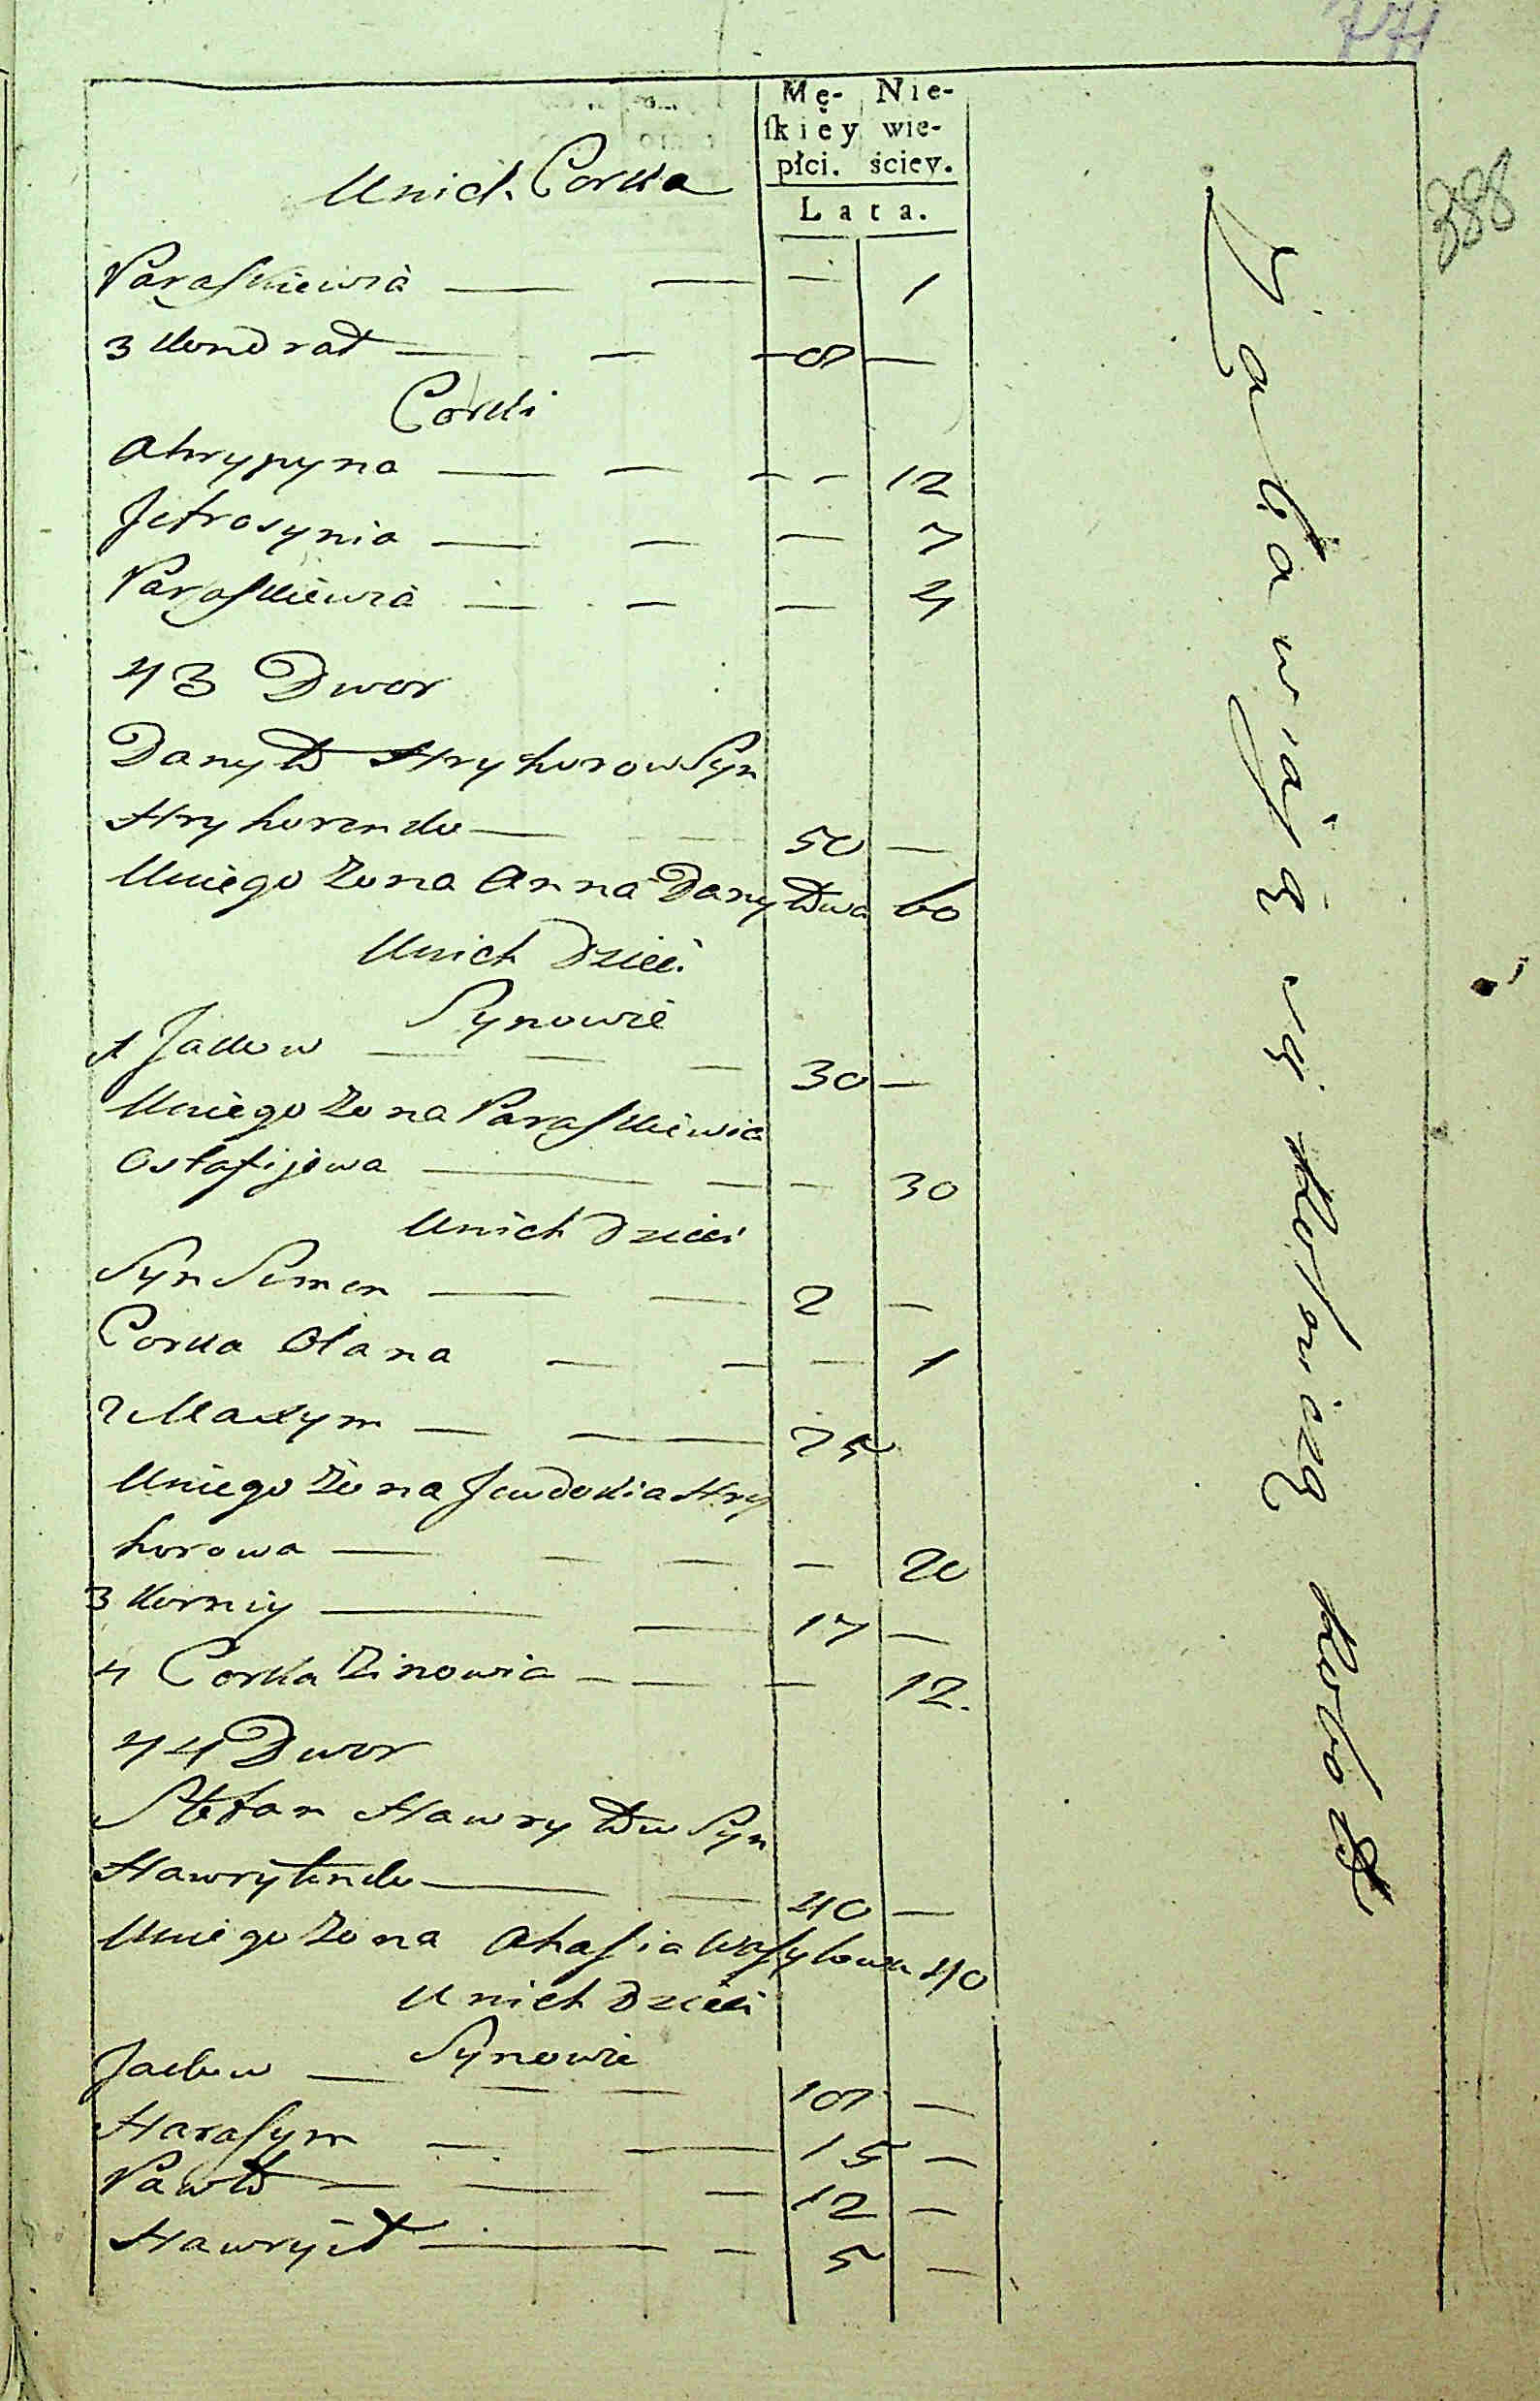 771
388
Mę- Nie-
ſkiey wie-
płci. ściey.
Lata.
Unich Corka
Paraſkiewia — — — 1
3 Kondrat — — 8 —
Corki
Ahrypyna — — — — 12
Jefrosynia — — — 7
Paraſkiewia — — — 4
43 Dwor
Danyło Hryhorow Syn
Hryhorenko — 50 —
Uniego Zona Anna Danyłowa 60
Unich Dzieci
Synowie
1 Jakow — — — 30 —
Uniego Zona Paraſkiewia
Ostafijowa — — — 30
Unich Dzieci
Syn Semen — — 2 —
Corka Olana — — — 1
2 Maxym — — 25
Uniego Zona Jewdokia Hry
horowa — — — — 20
3 Korniy — — 17 —
4 Corka Zinowia — — — 12.
44 Dwor
Stefan Hawryłow Syn
Hawryłenko — — 40 —
Uniego Zona Ahafia Waſylowa 40
Unich Dzieci
Synowie
Jakow — — — 18 —
Haraſym — — 15 —
Pawło — — — 12 —
Hawryło — — 5 —
Zabawiaią się Rolniczą Robotą